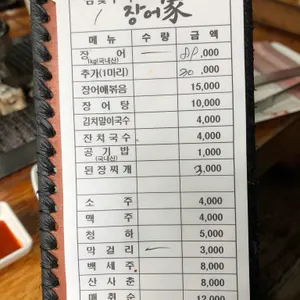 장어家
메뉴 수량 금액
장어 1kg(국내산) 88,000
추가(1마리) 30,000
장어애볶음 15,000
장어탕 10,000
김치말이국수 4,000
잔치국수 4,000
공기밥 (국내산) 1,000
된장찌개 3,000
소주 4,000
맥주 4,000
청하 5,000
막걸리 3,000
백세주 8,000
산사춘 8,000
매취순 12,000